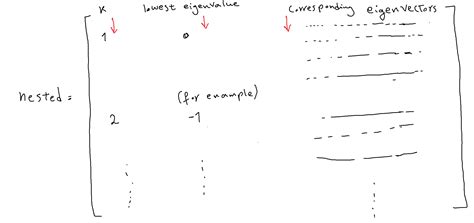 K lowest eigenvalue corresponding eigenvectors
1 0
nested =
(for example)
2 -1